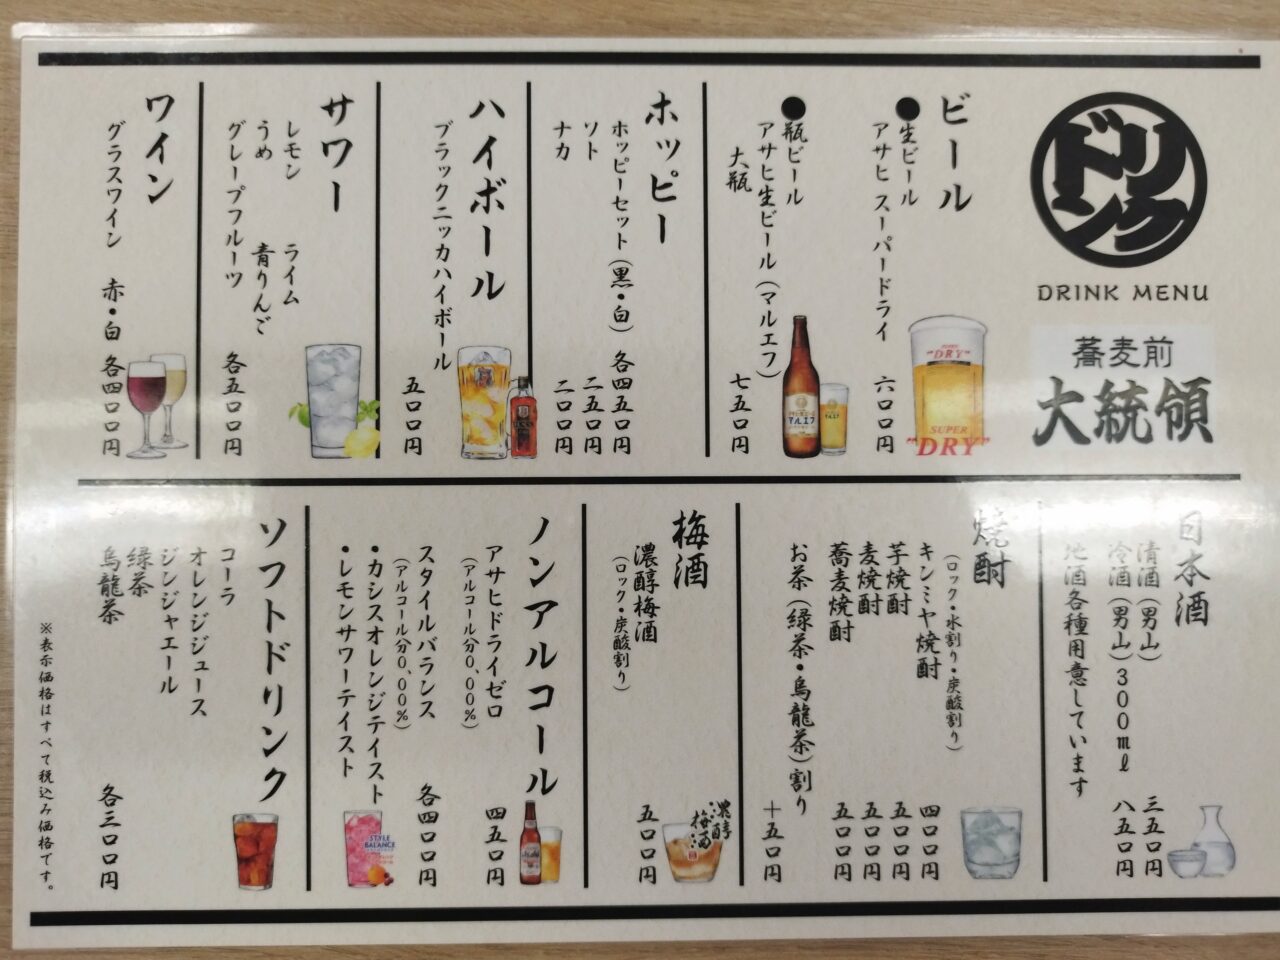 ドリンク
DRINK MENU
蕎麦前
大統領
ビール
●生ビール
アサヒ スーパードライ 六〇〇円
●瓶ビール
アサヒ生ビール(マルエフ)
大瓶 七五〇円
"DRY"
SUPER
"DRY"
マルエフ
ホッピー
ホッピーセット(黒・白) 各四五〇円
ソト 二五〇円
ナカ 二〇〇円
ハイボール
ブラックニッカハイボール
五〇〇円
サワー
レモン ライム
うめ 青りんご
グレープフルーツ
各五〇〇円
ワイン
グラスワイン 赤・白 各四〇〇円
日本酒
清酒(男山) 三五〇円
冷酒(男山)300ml 八五〇円
地酒各種用意しています
焼酎
(ロック・水割り・炭酸割り)
キンミヤ焼酎 四〇〇円
芋焼酎 五〇〇円
麦焼酎 五〇〇円
蕎麦焼酎 五〇〇円
お茶(緑茶・烏龍茶)割り
+五〇円
梅酒
濃醇梅酒 五〇〇円
(ロック・炭酸割り)
濃醇
梅酒
ノンアルコール
アサヒドライゼロ 四五〇円
(アルコール分0.00%)
スタイルバランス 各四〇〇円
(アルコール分0.00%)
・カシスオレンジテイスト
・レモンサワーテイスト
STYLE
BALANCE
ソフトドリンク
コーラ
オレンジジュース
ジンジャエール
緑茶
烏龍茶 各三〇〇円
※表示価格はすべて税込み価格です。